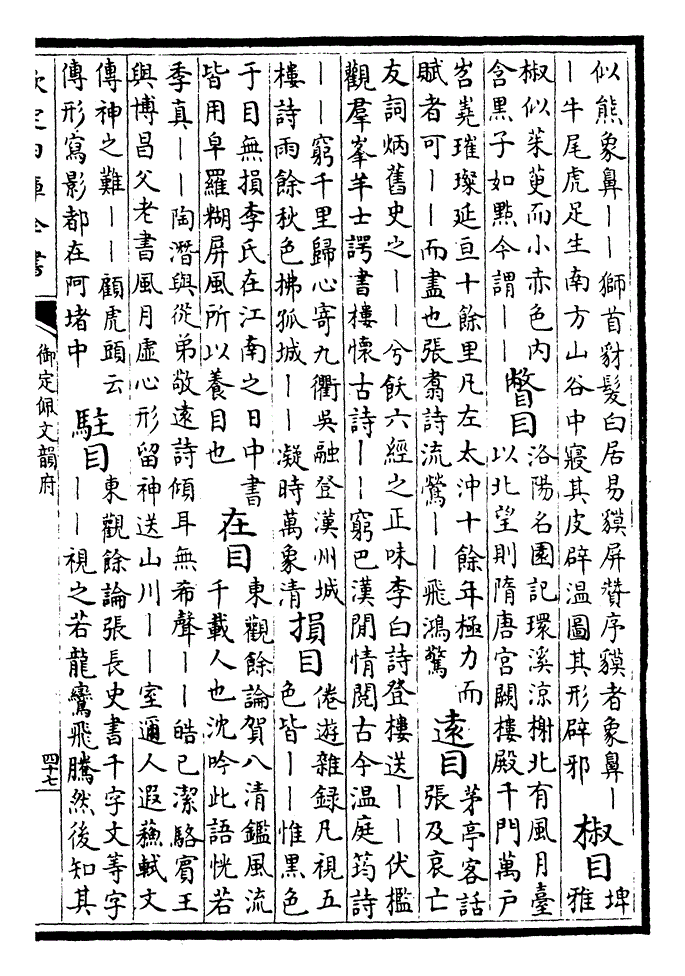 似熊象鼻｜｜獅首豺髮白居易貘屏贊序貘者象鼻｜
｜牛尾虎足生南方山谷中寢其皮辟温圖其形辟邪
椒目
埤
雅
椒似茱萸而小赤色内
含黑子如點今謂｜｜
瞥目
洛陽名園記環溪涼榭北有風月臺
以北望則隋唐宫闕樓殿千門萬戸
岧嶤璀璨延亘十餘里凡左太沖十餘年極力而
賦者可｜｜而盡也張翥詩流鶯｜｜飛鴻驚
遠目
茅亭客話
張及哀亡
友詞炳舊史之｜｜兮飫六經之正味李白詩登樓送｜｜伏檻
觀羣峯羊士諤書樓懷古詩｜｜窮巴漢閒情閱古今温庭筠詩
｜｜窮千里歸心寄九衢吳融登漢州城
樓詩雨餘秋色拂孤城｜｜凝時萬象清
損目
倦遊雜録凡視五
色皆｜｜惟黑色
于目無損李氏在江南之日中書
皆用皁羅糊屏風所以養目也
在目
東觀餘論賀八清鑑風流
千載人也沈吟此語恍若
季真｜｜陶潛與從弟敬遠詩傾耳無希聲｜｜皓已潔駱賓王
與博昌父老書風月虚心形留神送山川｜｜室邇人遐蘓軾文
傳神之難｜｜顧虎頭云
傳形寫影都在阿堵中
駐目
東觀餘論張長史書千字文等字
｜｜視之若龍鸞飛騰然後知其
欽定四庫全書
御定佩文韻府
四十七